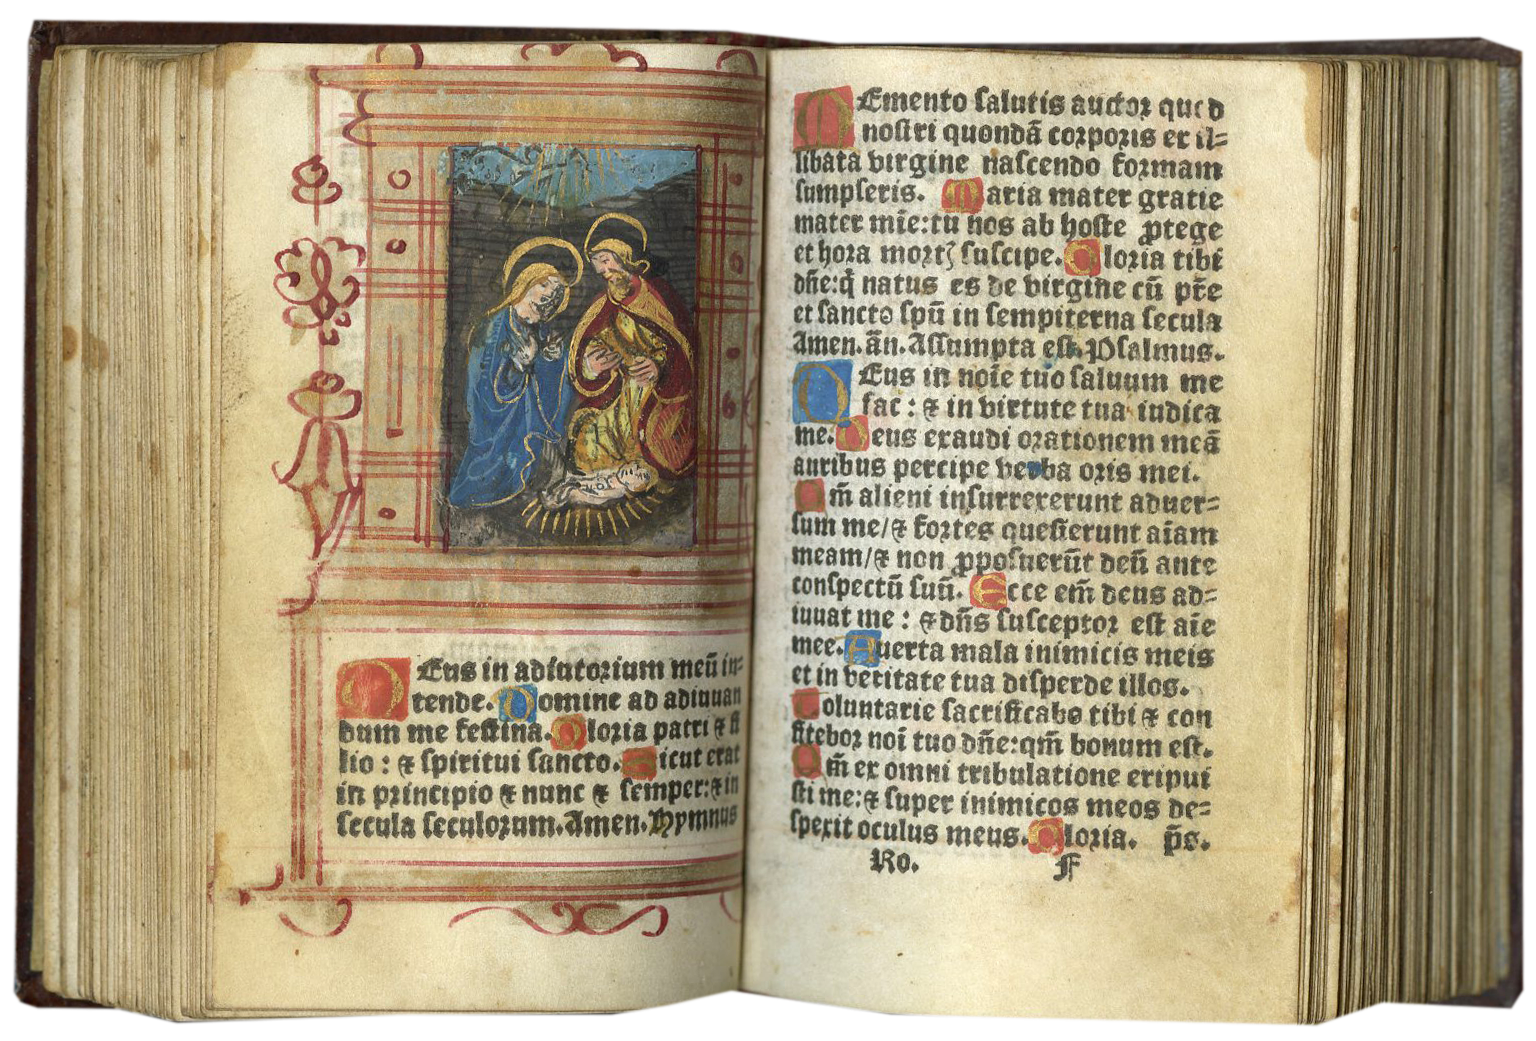 Deus in adiutorium meū in-
tende. Domine ad adiuuan
dum me festina. Gloria patri & fi
lio : & spiritui sancto. Sicut erat
in principio & nunc & semper: & in
secula seculorum. Amen. Hymnus
Memento salutis auctor quod
nostri quondā corporis ex il-
libata virgine nascendo formam
sumpseris. Maria mater gratie
mater mīe: tu nos ab hoste ꝓtege
et hora mortꝭ suscipe. Gloria tibi
dn̄e: q̄ natus es de virgine cū pr̄e
et sancto spū in sempiterna secula
Amen. an̄. Assumpta est. Psalmus.
Deus in noīe tuo saluum me
fac : & in virtute tua iudica
me. Deus exaudi orationem meā
auribus percipe verba oris mei.
Qm̄ alieni insurrexerunt aduer-
sum me/& fortes quesierunt aīam
meam/& non ꝓposuerūt deū ante
conspectū suū. Ecce em̄ deus ad-
iuuat me : & dn̄s susceptor est aīe
mee. Auerta mala inimicis meis
et in veritate tua disperde illos.
Voluntarie sacrificabo tibi & con
fitebor noī tuo dn̄e: qm̄ bonum est.
Qm̄ ex omni tribulatione eripui
sti me: & super inimicos meos de-
spexit oculus meus. Gloria. p̄s.
Ro. F